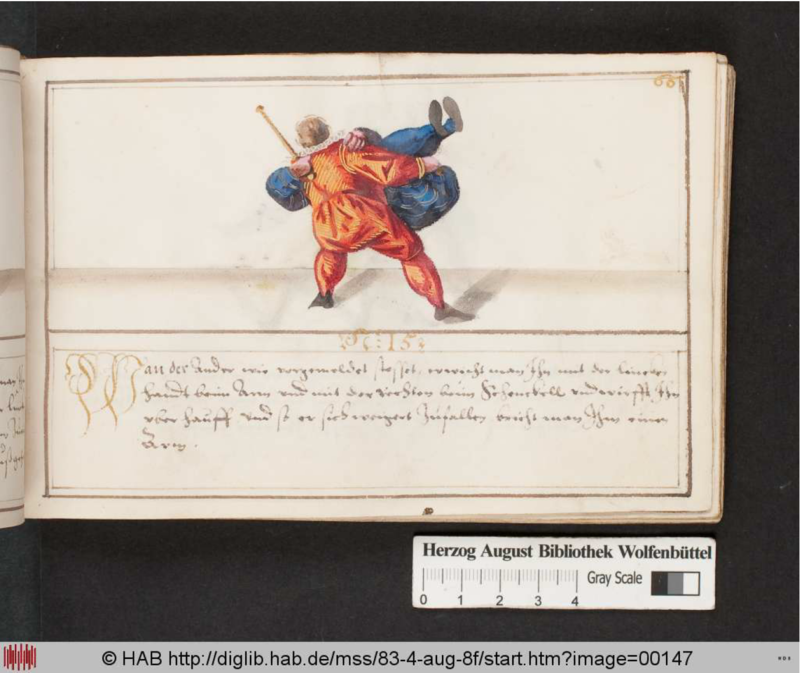 66
N: 15:
Wan der Ander wie vorgemeldet stosset, erwischt man Ihn mit der lincken
handt beim Arm und mit der rechten beim Schenckell und wirfft Ihn
vber hauff und so er sich weigert zufallen bricht man Ihm einen
Arm.
Herzog August Bibliothek Wolfenbüttel
Gray Scale
0 1 2 3 4
© HAB http://diglib.hab.de/mss/83-4-aug-8f/start.htm?image=00147